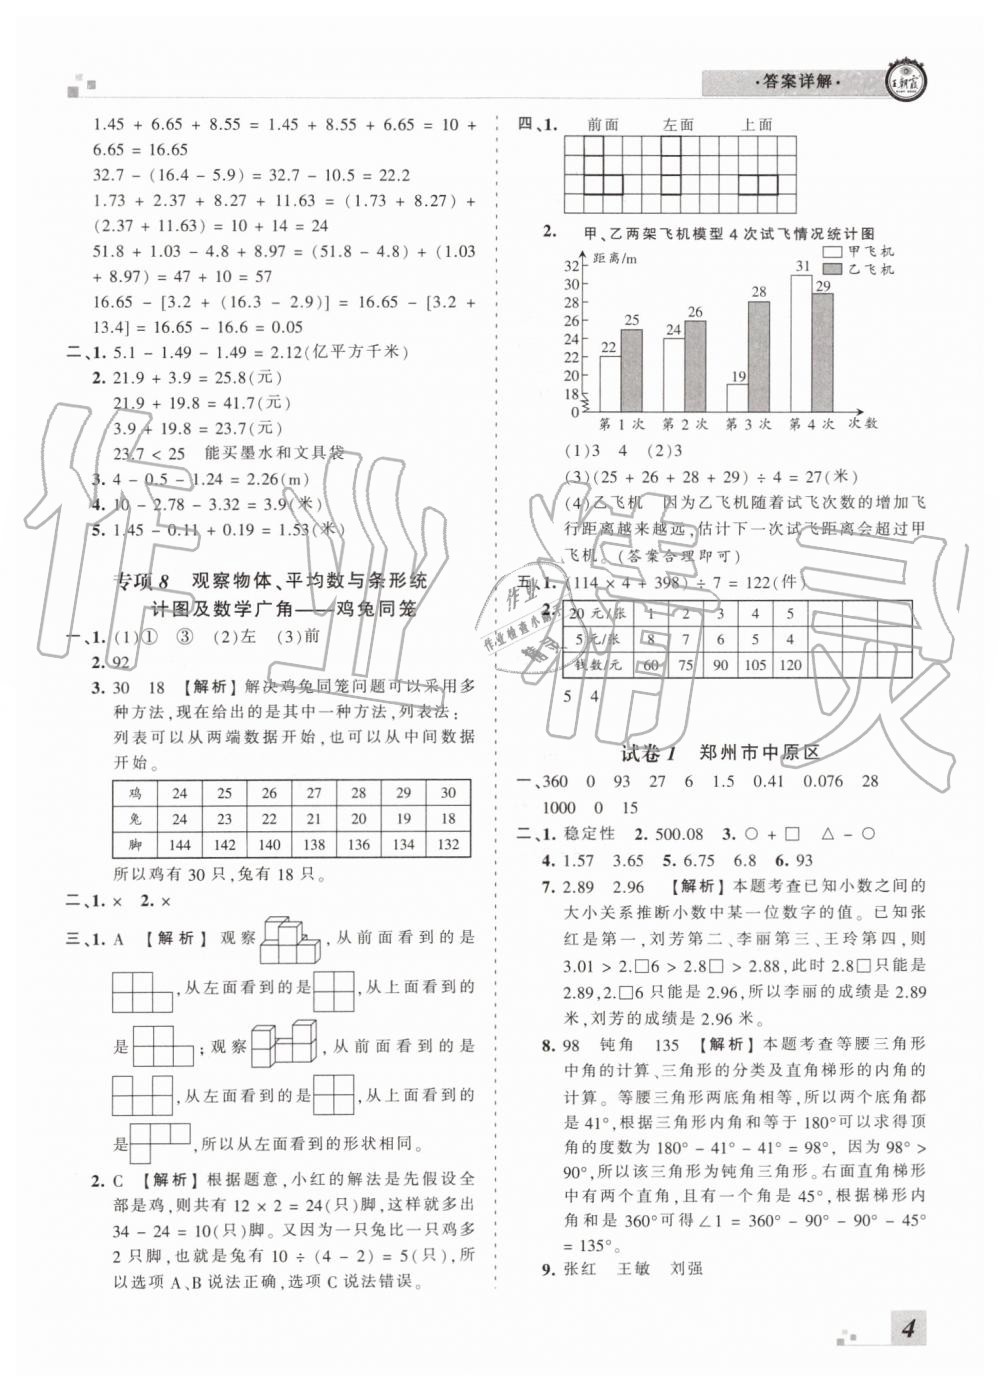 ·答案详解·
王朝霞
1.45 + 6.65 + 8.55 = 1.45 + 8.55 + 6.65 = 10 +
6.65 = 16.65
32.7 - (16.4 - 5.9) = 32.7 - 10.5 = 22.2
1.73 + 2.37 + 8.27 + 11.63 = (1.73 + 8.27) +
(2.37 + 11.63) = 10 + 14 = 24
51.8 + 1.03 - 4.8 + 8.97 = (51.8 - 4.8) + (1.03
+ 8.97) = 47 + 10 = 57
16.65 - [3.2 + (16.3 - 2.9)] = 16.65 - [3.2 +
13.4] = 16.65 - 16.6 = 0.05
二、1. 5.1 - 1.49 - 1.49 = 2.12(亿平方千米)
2. 21.9 + 3.9 = 25.8(元)
21.9 + 19.8 = 41.7(元)
3.9 + 19.8 = 23.7(元)
23.7 < 25 能买墨水和文具袋
3. 4 - 0.5 - 1.24 = 2.26(m)
4. 10 - 2.78 - 3.32 = 3.9(米)
5. 1.45 - 0.11 + 0.19 = 1.53(米)
专项8 观察物体、平均数与条形统
计图及数学广角——鸡兔同笼
一、1. (1)① ③ (2)左 (3)前
2. 92
3. 30 18 【解析】解决鸡兔同笼问题可以采用多
种方法,现在给出的是其中一种方法,列表法:
列表可以从两端数据开始,也可以从中间数据
开始。
鸡 24 25 26 27 28 29 30
兔 24 23 22 21 20 19 18
脚 144 142 140 138 136 134 132
所以鸡有30只,兔有18只。
二、1. × 2. ×
三、1. A 【解析】观察,从前面看到的是
,从左面看到的是,从上面看到的
是;观察,从前面看到的是
,从左面看到的是,从上面看到的
是,所以从左面看到的形状相同。
2. C 【解析】根据题意,小红的解法是先假设全
部是鸡,则共有12 × 2 = 24(只)脚,这样就多出
34 - 24 = 10(只)脚。又因为一只兔比一只鸡多
2只脚,也就是兔有10 ÷ (4 - 2) = 5(只),所
以选项A、B说法正确,选项C说法错误。
四、1. 前面 左面 上面
2. 甲、乙两架飞机模型4次试飞情况统计图
距离/m
甲飞机
乙飞机
32
30
28
26
24
22
20
18
0
22 25 24 26 19 28 31 29
第1次 第2次 第3次 第4次 次数
(1)3 4 (2)3
(3)(25 + 26 + 28 + 29) ÷ 4 = 27(米)
(4)乙飞机 因为乙飞机随着试飞次数的增加飞
行距离越来越远,估计下一次试飞距离会超过甲
飞机。(答案合理即可)
五、1. (114 × 4 + 398) ÷ 7 = 122(件)
2.
20元/张 1 2 3 4 5
5元/张 8 7 6 5 4
钱数/元 60 75 90 105 120
5 4
试卷1 郑州市中原区
一、360 0 93 27 6 1.5 0.41 0.076 28
1000 0 15
二、1. 稳定性 2. 500.08 3. ○ + □ △ - ○
4. 1.57 3.65 5. 6.75 6.8 6. 93
7. 2.89 2.96 【解析】本题考查已知小数之间的
大小关系推断小数中某一位数字的值。已知张
红是第一,刘芳第二、李丽第三、王玲第四,则
3.01 > 2.□6 > 2.8□ > 2.88,此时2.8□只能是
2.89,2.□6只能是2.96,所以李丽的成绩是2.89
米,刘芳的成绩是2.96米。
8. 98 钝角 135 【解析】本题考查等腰三角形
中角的计算、三角形的分类及直角梯形的内角的
计算。等腰三角形两底角相等,所以两个底角都
是41°,根据三角形内角和等于180°可以求得顶
角的度数为180° - 41° - 41° = 98°,因为98° >
90°,所以该三角形为钝角三角形。右面直角梯形
中有两个直角,且有一个角是45°,根据梯形内角
和是360°可得∠1 = 360° - 90° - 90° - 45°
= 135°。
9. 张红 王敏 刘强
4
作业精灵
作业
作业检查小